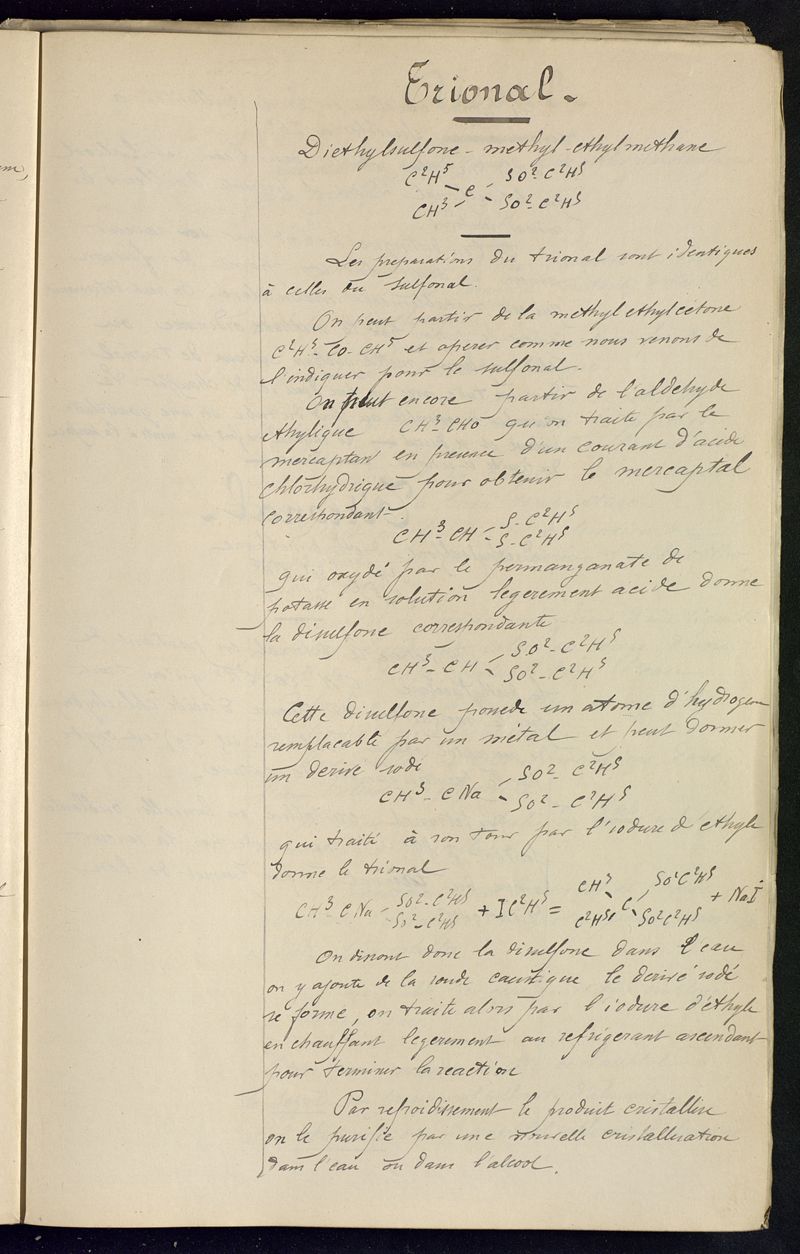 Trional.
Diethylsulfone - methyl - ethylmethane
C²H⁵ SO²- C²H⁵
C
CH³ SO²- C²H⁵
Les preparations du trional sont identiques
à celles du sulfonal.
On peut partir de la methylethylcetone
C²H⁵- CO- CH³ et operer comme nous venons de
l'indiquer pour le sulfonal.
On peut encore partir de l'aldehyde
ethylique CH³- CHO qu'on traite par le
mercaptan en presence d'un courant d'acide
chlorhydrique pour obtenir le mercaptal
correspondant.
S- C²H⁵
CH³- CH
S- C²H⁵
qui oxydé par le permanganate de
potasse en solution legerement acide donne
la disulfone correspondante
SO²- C²H⁵
CH³- CH
SO²- C²H⁵
Cette disulfone possede un atome d'hydrogene
remplacable par un métal et peut donner
un derive sodé
SO²- C²H⁵
CH³- CNa
SO²- C²H⁵
qui traité à son tour par l'iodure d'ethyle
donne le trional
SO²- C²H⁵ CH³ SO²C²H⁵
CH³- CNa + IC²H⁵ = C + NaI
SO²- C²H⁵ C²H⁵ SO²C²H⁵
On dissout donc la disulfone dans l'eau
on y ajoute de la soude caustique le derivé sodé
se forme, on traite alors par l'iodure d'éthyle
en chauffant legerement au refrigerant ascendant
pour terminer la reaction
Par refroidissement le produit cristallise
on le purifie par une nouvelle cristallisation
dans l'eau ou dans l'alcool.